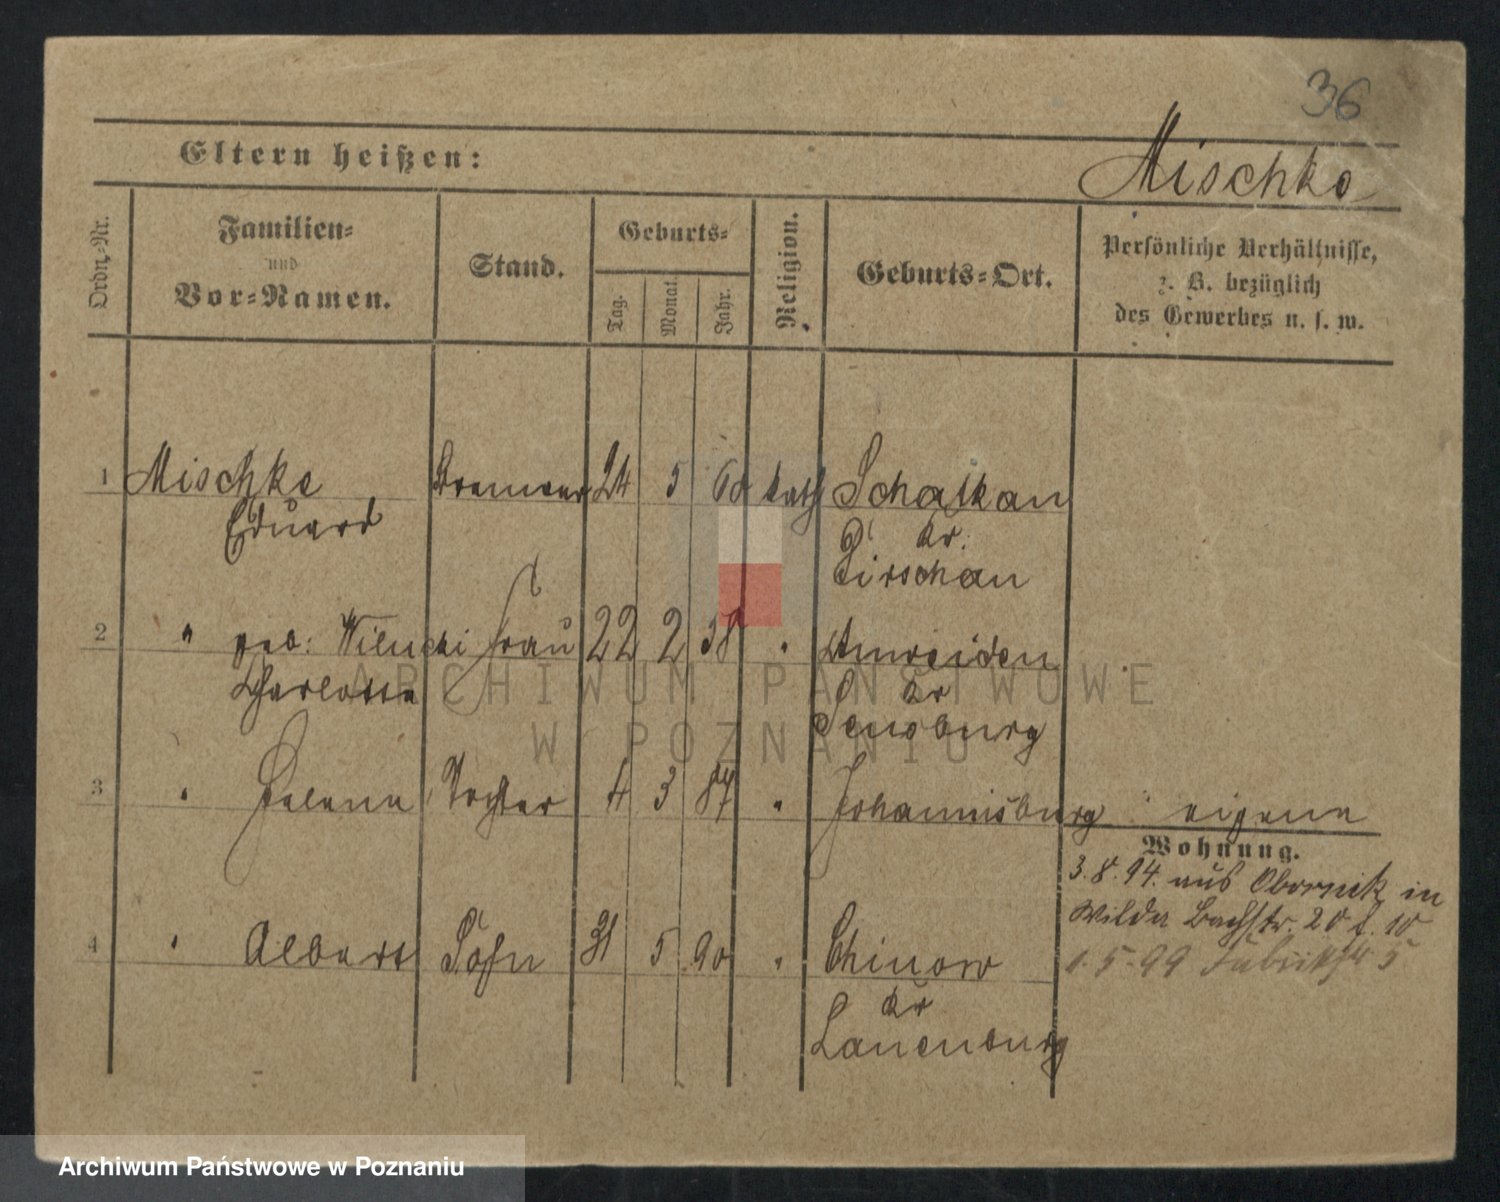 36
Eltern heißen:
Mischke
Ordn.-Nr.
Familien-
und
Vor-Namen.
Stand.
Geburts-
Tag.
Monat.
Jahr.
Religion.
Geburts-Ort.
Persönliche Verhältnisse,
z. B. bezüglich
des Gewerbes u. s. w.
1 Mischke 24 5 kath Schalkau
Eduard Kr.
Dirschau
2 " geb: Frau 22 2 58 "
Charlotte Kr
Sensburg
3 " Helene Tochter 4 3 87 " Johannisburg eigene
Wohnung.
3.8.94. aus Obornik in
Wilda Bachstr. 20 b. 10
4 " Albert Sohn 31 5 90 " Chinow
1.5.99 Fabrikstr 5
Kr
Lauenburg
ARCHIWUM PAŃSTWOWE
W POZNANIU
Archiwum Państwowe w Poznaniu